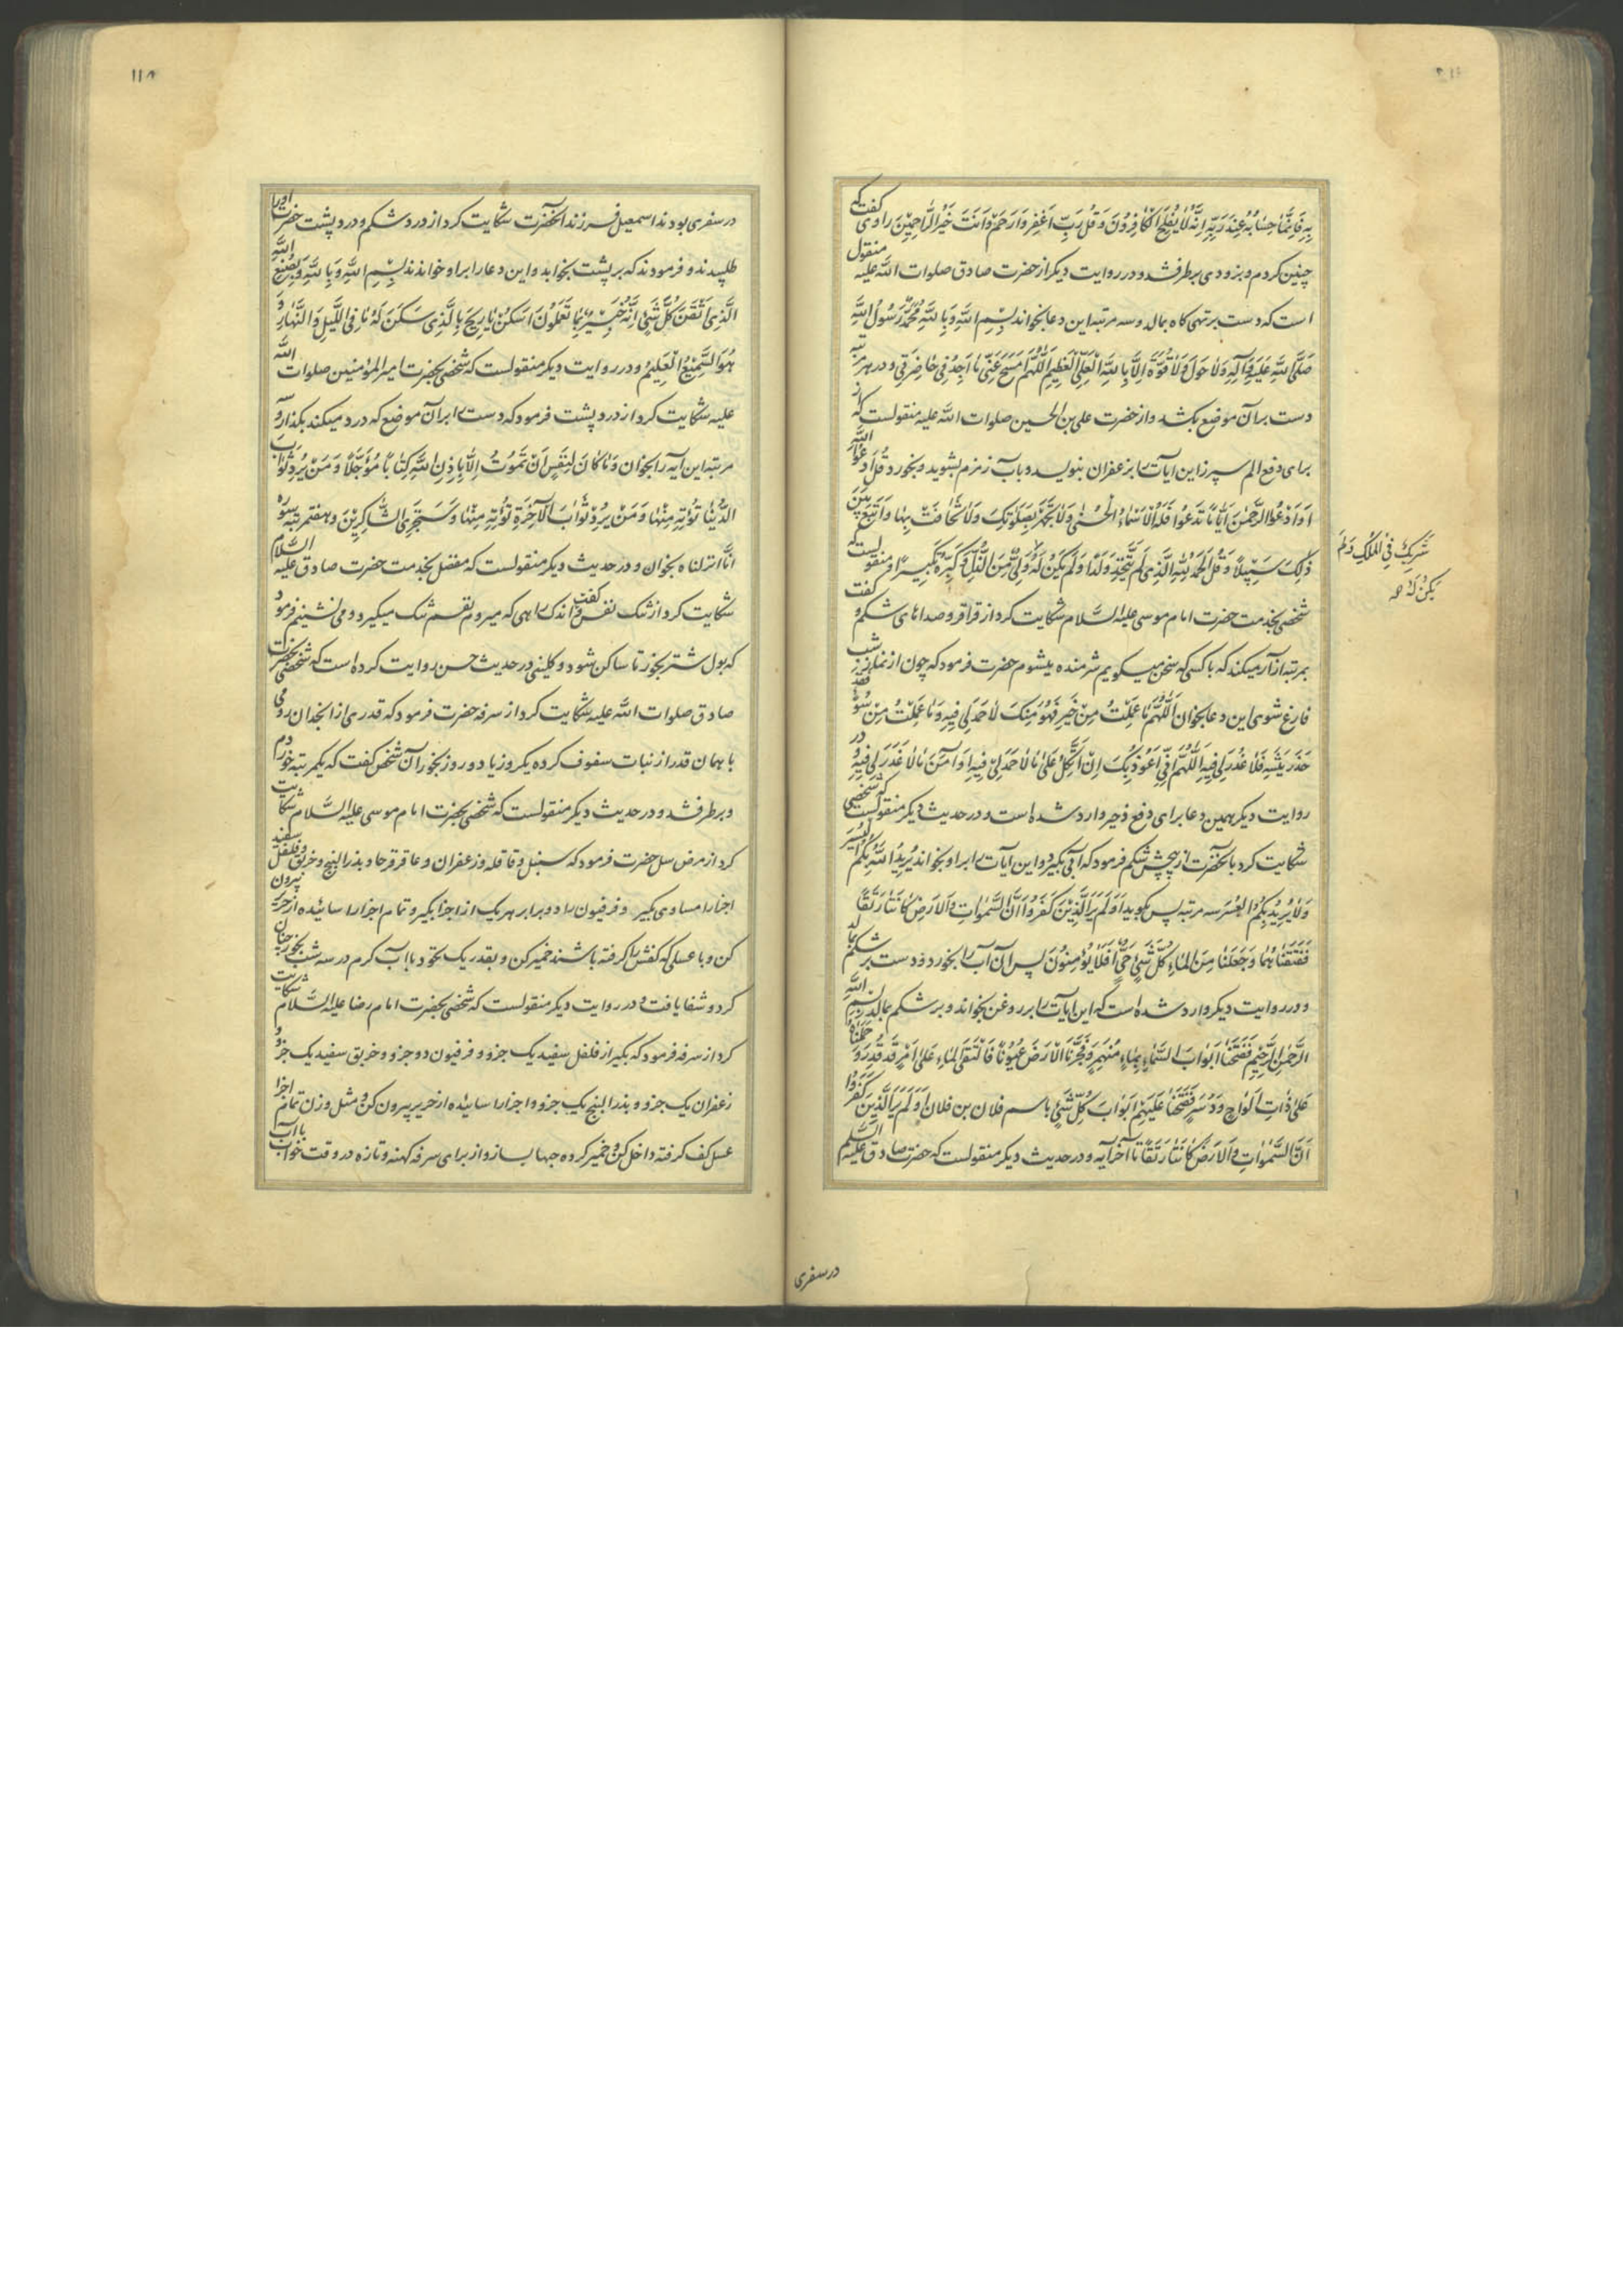 بِهِ فَاِنَّمَا حِسَابُهُ عِنْدَ رَبِّهِ اِنَّهُ لَا يُفْلِحُ الْكَافِرُونَ وَ قُلْ رَبِّ اغْفِرْ وَارْحَمْ وَاَنْتَ خَيْرُ الرَّاحِمِيْنَ راوی گفت که
چنین کردم و بزودی برطرف شد و در روایت دیگر از حضرت صادق صلوات الله علیه منقول
است که دست بر تهی کاه بمالد و سه مرتبه این دعا بخواند بِسْمِ اللهِ وَ بِاللهِ مُحَمَّدٌ رَسُولُ اللهِ
صَلَّى اللهُ عَلَيْهِ وَآلِهِ وَلَا حَوْلَ وَلَا قُوَّةَ اِلَّا بِاللهِ الْعَلِيِّ الْعَظِيمِ اَللّٰهُمَّ امْسَحْ عَنِّي مَا اَجِدُ فِي خَاصِرَتِي و در هر مرتبه
دست بر آن موضع بکشد و از حضرت علی بن الحسین صلوات الله علیه منقولست که از
برای دفع الم سپرز این ایات را بزعفران بنویسد و بآب زمزم بشوید و بخورد قُلِ ادْعُوا اللهَ
اَوِ ادْعُوا الرَّحْمٰنَ اَيًّا مَا تَدْعُوا فَلَهُ الْاَسْمَاءُ الْحُسْنٰى وَلَا تَجْهَرْ بِصَلٰوتِكَ وَلَا تُخَافِتْ بِهَا وَابْتَغِ بَيْنَ
ذٰلِكَ سَبِيْلًا وَ قُلِ الْحَمْدُ لِلّٰهِ الَّذِي لَمْ يَتَّخِذْ وَلَدًا وَلَمْ يَكُنْ لَهُ وَلِيٌّ مِنَ الذُّلِّ وَ كَبِّرْهُ تَكْبِيْرًا و منقولست که
شَرِيكٌ فِي الْمُلْكِ وَلَمْ
يَكُنْ لَهُ صح
شخصی بخدمت حضرت امام موسی علیه السلام شکایت کرد از قراقر و صداهای شکم و گفت
بمرتبه آزار میکند که با کسی که سخن میگویم شرمنده میشوم حضرت فرمود که چون از نماز شب
فارغ شوی این دعا بخوان اَللّٰهُمَّ مَا عَمِلْتُ مِنْ خَيْرٍ فَهُوَ مِنْكَ لَا حَمْدَ لِي فِيهِ وَمَا عَمِلْتُ مِنْ سُوءٍ فَقَدْ
حَذَّرْتَنِيهِ فَلَا عُذْرَ لِي فِيهِ اَللّٰهُمَّ اِنِّي اَعُوذُ بِكَ اَنْ اَتَّكِلَ عَلٰى مَا لَا حَمْدَ لِي فِيهِ اَوْ اٰمَنَ مَا لَا عُذْرَ لِي فِيهِ و در
روایت دیگر همین دعا برای دفع زحیر وارد شده است و در حدیث دیگر منقولست که شخصی
شکایت کرد بآنحضرت از پیچش شکم فرمود که آبی بگیر و این آیات را بر او بخواند يُرِيْدُ اللهُ بِكُمُ الْيُسْرَ
وَلَا يُرِيْدُ بِكُمُ الْعُسْرَ سه مرتبه پس بگوید اَوَلَمْ يَرَ الَّذِيْنَ كَفَرُوا اَنَّ السَّمٰوَاتِ وَ الْاَرْضَ كَانَتَا رَتْقًا
فَفَتَقْنَاهُمَا وَجَعَلْنَا مِنَ الْمَاءِ كُلَّ شَيْءٍ حَيٍّ اَفَلَا يُؤْمِنُونَ پس آن آب را بخورد و دست بر شکم بمالد
و در روایت دیگر وارد شده است که این ایات را بر روغن بخواند و بر شکم بمالد بِسْمِ اللهِ
الرَّحْمٰنِ الرَّحِيْمِ فَفَتَحْنَا اَبْوَابَ السَّمَاءِ بِمَاءٍ مُنْهَمِرٍ وَفَجَّرْنَا الْاَرْضَ عُيُونًا فَالْتَقَى الْمَاءُ عَلٰى اَمْرٍ قَدْ قُدِرَ وَ حَمَلْنَاهُ
عَلٰى ذَاتِ اَلْوَاحٍ وَدُسُرٍ فَفَتَحْنَا عَلَيْهِمْ اَبْوَابَ كُلِّ شَيْءٍ باسم فلان بن فلان اَوَلَمْ يَرَ الَّذِيْنَ كَفَرُوا
اَنَّ السَّمٰوَاتِ وَ الْاَرْضَ كَانَتَا رَتْقًا تا آخر آیه و در حدیث دیگر منقولست که حضرت صادق علیه السلم
در سفری
۱۱۸
در سفری بودند اسمعیل فرزند آنحضرت شکایت کرد از درد شکم و درد پشت حضرت اورا
طلبیدند و فرمودند که بر پشت بخوابد و این دعا را بر او خواندند بِسْمِ اللهِ وَ بِاللهِ وَ بِصُنْعِ اللهِ
الَّذِي اَتْقَنَ كُلَّ شَيْءٍ اِنَّهُ خَبِيْرٌ بِمَا تَعْمَلُونَ اُسْكُنْ يَا رِيْحُ بِالَّذِي سَكَنَ لَهُ مَا فِي اللَّيْلِ وَ النَّهَارِ وَ
هُوَ السَّمِيْعُ الْعَلِيْمُ و در روایت دیگر منقولست که شخصی بحضرت امیر المؤمنین صلوات الله
علیه شکایت کرد از درد پشت فرمود که دست را بر آن موضع که درد میکند بگذار و سه
مرتبه این آیه را بخوان وَمَا كَانَ لِنَفْسٍ اَنْ تَمُوتَ اِلَّا بِاِذْنِ اللهِ كِتَابًا مُؤَجَّلًا وَ مَنْ يُرِدْ ثَوَابَ
الدُّنْيَا نُؤْتِهِ مِنْهَا وَ مَنْ يُرِدْ ثَوَابَ الْآخِرَةِ نُؤْتِهِ مِنْهَا وَ سَنَجْزِي الشَّاكِرِيْنَ و هفت مرتبه سوره
انّا انزلناه بخوان و در حدیث دیگر منقولست که مفضل بخدمت حضرت صادق علیه السلام
شکایت کرد از تنگ نفس و گفت اندک راهی که میروم نفسم تنگ میگیرد و می نشینم فرمود
که بول شتر بخور تا ساکن شود و کلینی در حدیث حسن روایت کرده است که شخصی بحضرت
صادق صلوات الله علیه شکایت کرد از سرفه حضرت فرمود که قدری از انجدان رومی
با همان قدر از نبات سفوف کرده یکروز یا دو روز بخور آن شخص گفت که یکمرتبه خوردم
و برطرف شد و در حدیث دیگر منقولست که شخصی بحضرت امام موسی علیه السلام شکایت
کرد از مرض سل حضرت فرمود که سنبل و قاقله و زعفران و عاقرقرحا و بذر البنج و خربق و فلفل سفید
اجزا را مساوی بگیر و فرفیون را دو برابر هر یک از اجزا بگیر و تمام اجزا را سائیده از حریر بیرون
کن و با عسلی که کفش را گرفته باشند خمیر کن و بقدر یک نخود با آب گرم در سه شب بخور چنان
کرد و شفا یافت و در روایت دیگر منقولست که شخصی بحضرت امام رضا علیه السلام شکایت
کرد از سرفه فرمود که بگیر از فلفل سفید یک جزو و فرفیون دو جزو و خربق سفید یک جزو و
زعفران یک جزو و بذر البنج یک جزو و اجزا را سائیده از حریر بیرون کن و مثل وزن تمام اجزا
عسل کف گرفته داخل کن و خمیر کرده حبها بساز و از برای سرفه کهنه و تازه در وقت خواب با آب